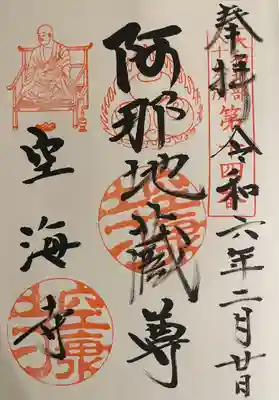 奉拝 令和六年二月廿日
阿那地蔵尊
空海寺